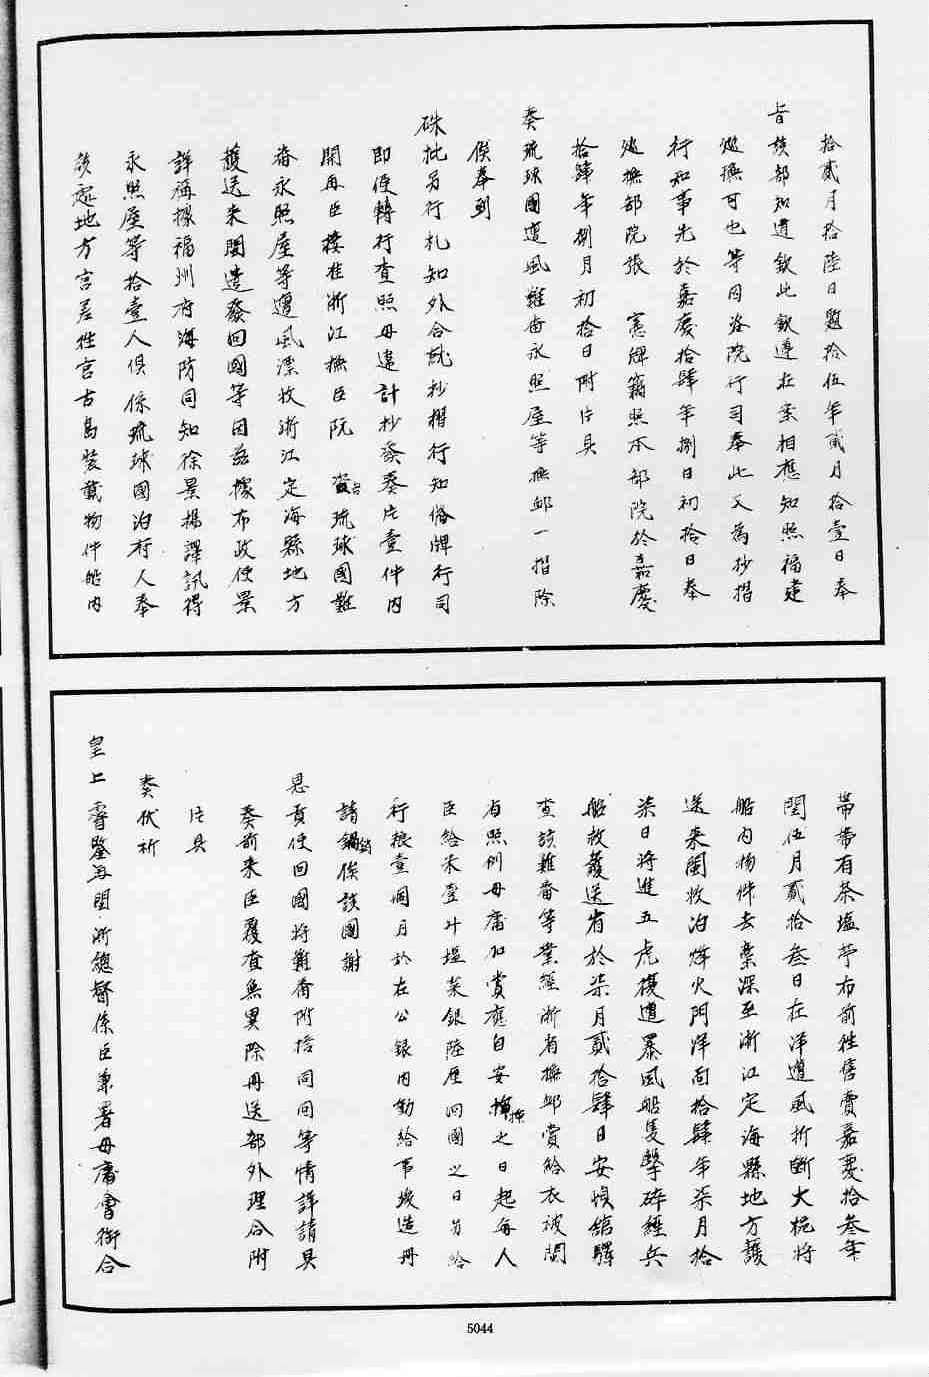 拾貳月拾陸日題拾伍年貳月拾壹日奉
旨該部知道欽此欽遵在案相應知照福建
巡撫可也等因咨院行司奉此又為抄摺
行知事先於嘉慶拾肆年捌日初拾日奉
巡撫部院張 憲牌竊照本部院於嘉慶
拾肆年捌月初拾日附片具
奏琉球國遭風難番永照屋等撫卹一摺除
俟奉到
硃批另行札知外合就抄摺行知俗牌行司
即便轉行查照毋違計抄發奏片壹件內
開再臣接准浙江撫臣阮 咨琉球國難
番永照屋等遭風漂收浙江定海縣地方
護送來閩遣發回國等因茲據布政使景
詳稱據福州府海防同知徐景揚譯訊得
永照屋等拾壹人俱係琉球國泊村人奉
該處地方官差往宮古島裝載物件船內
帶帶有茶塩苧布前往售賣嘉慶拾叁年
閏伍月貳拾叁日在洋遭風折斷大桅將
船內物件去棄深至浙江定海縣地方護
送來閩收泊烽火門洋面拾肆年柒月拾
柒日將進五虎復遭暴風船隻擊碎經兵
船救護送省於柒月貳拾肆日安頓館驛
查該難番等業經浙省撫卹賞給衣被閩
省照例毋庸加賞應自安揷之日起每人
日給米壹升塩菜銀陸厘回國之日另給
行粮壹個月於存公銀內動給事竣造冊
請銷俟該國謝
恩貢使回國將難番附搭同回等情詳請具
奏前來臣覆查無異除冊送部外理合附
片具
奏伏祈
皇上睿鑒再閩浙總督係臣兼署毋庸會銜合
5044